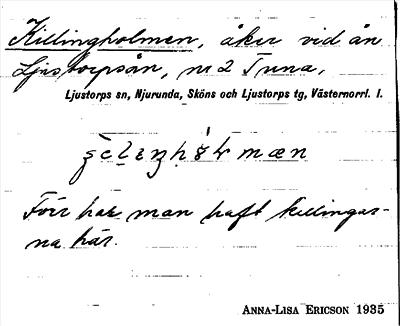 Killingholmen, åker vid ån
Ljustorpsån, nr 2 Tuna,
Ljustorps sn, Njurunda, Sköns och Ljustorps tg, Västernorrl. l.
Förr har man haft killingar-
na här.
ANNA-LISA ERICSON 1935